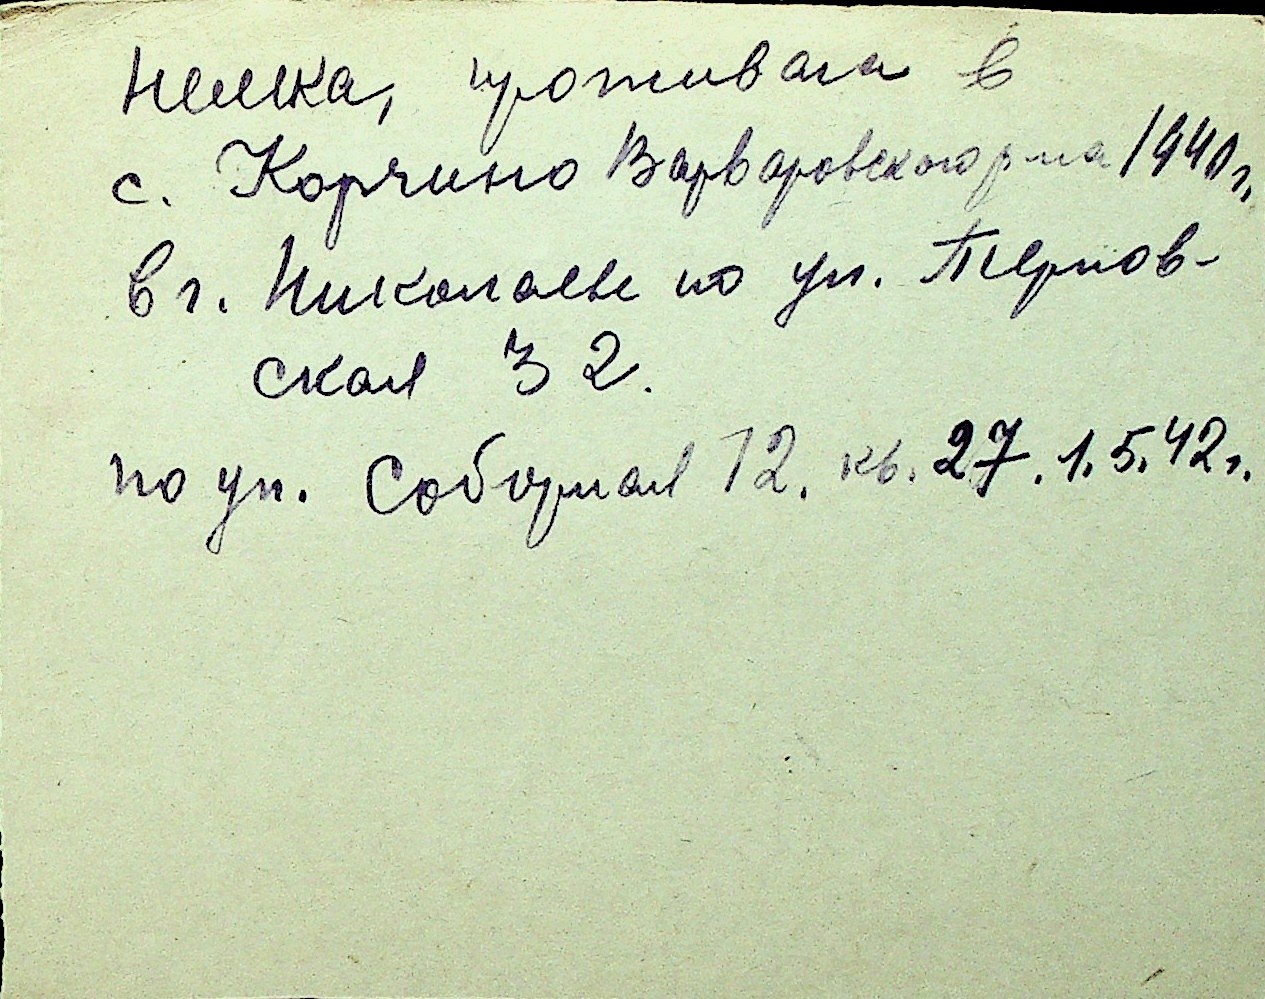 немка, проживала в
с. Корчино Варваровского р-на 1940 г.
в г. Николаеве по ул. Терnов-
ская 32.
по ул. Соборная 12. кв. 27. 1.5.42 г.